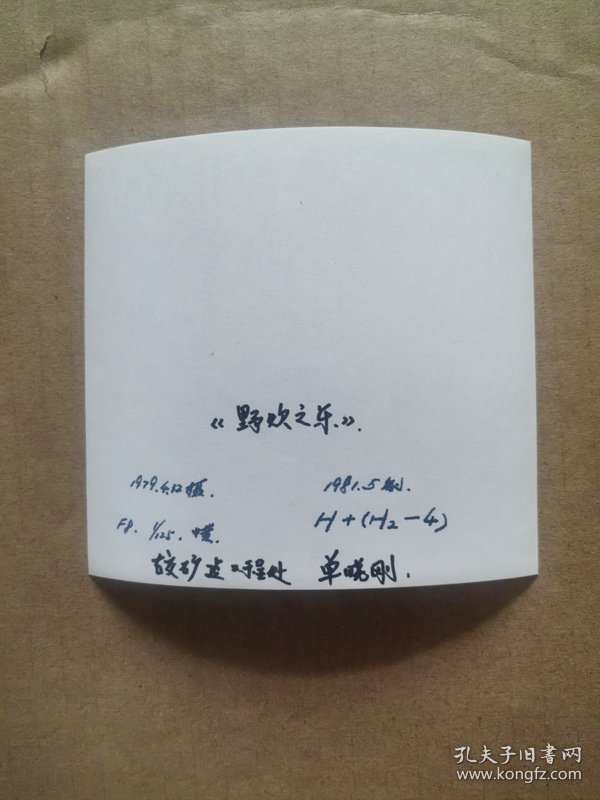 《野炊之乐》.
1979.4.12摄. 1981.5制.
F8. 1/125. 中黄. H+(H2-4)
矿务工程处 单晓刚.
孔夫子旧书网
www.kongfz.com